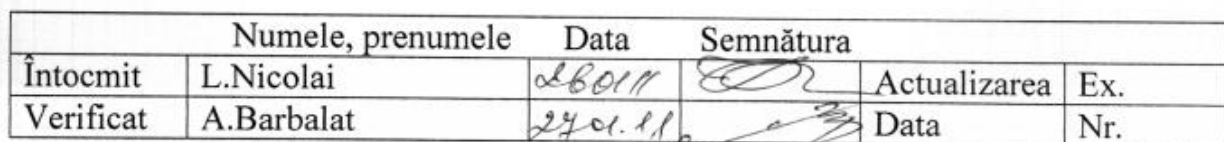 Numele, prenumele Data Semnătura
Întocmit L.Nicolai 26 01 11 Actualizarea Ex.
Verificat A.Barbalat 27 01. 11. Data Nr.